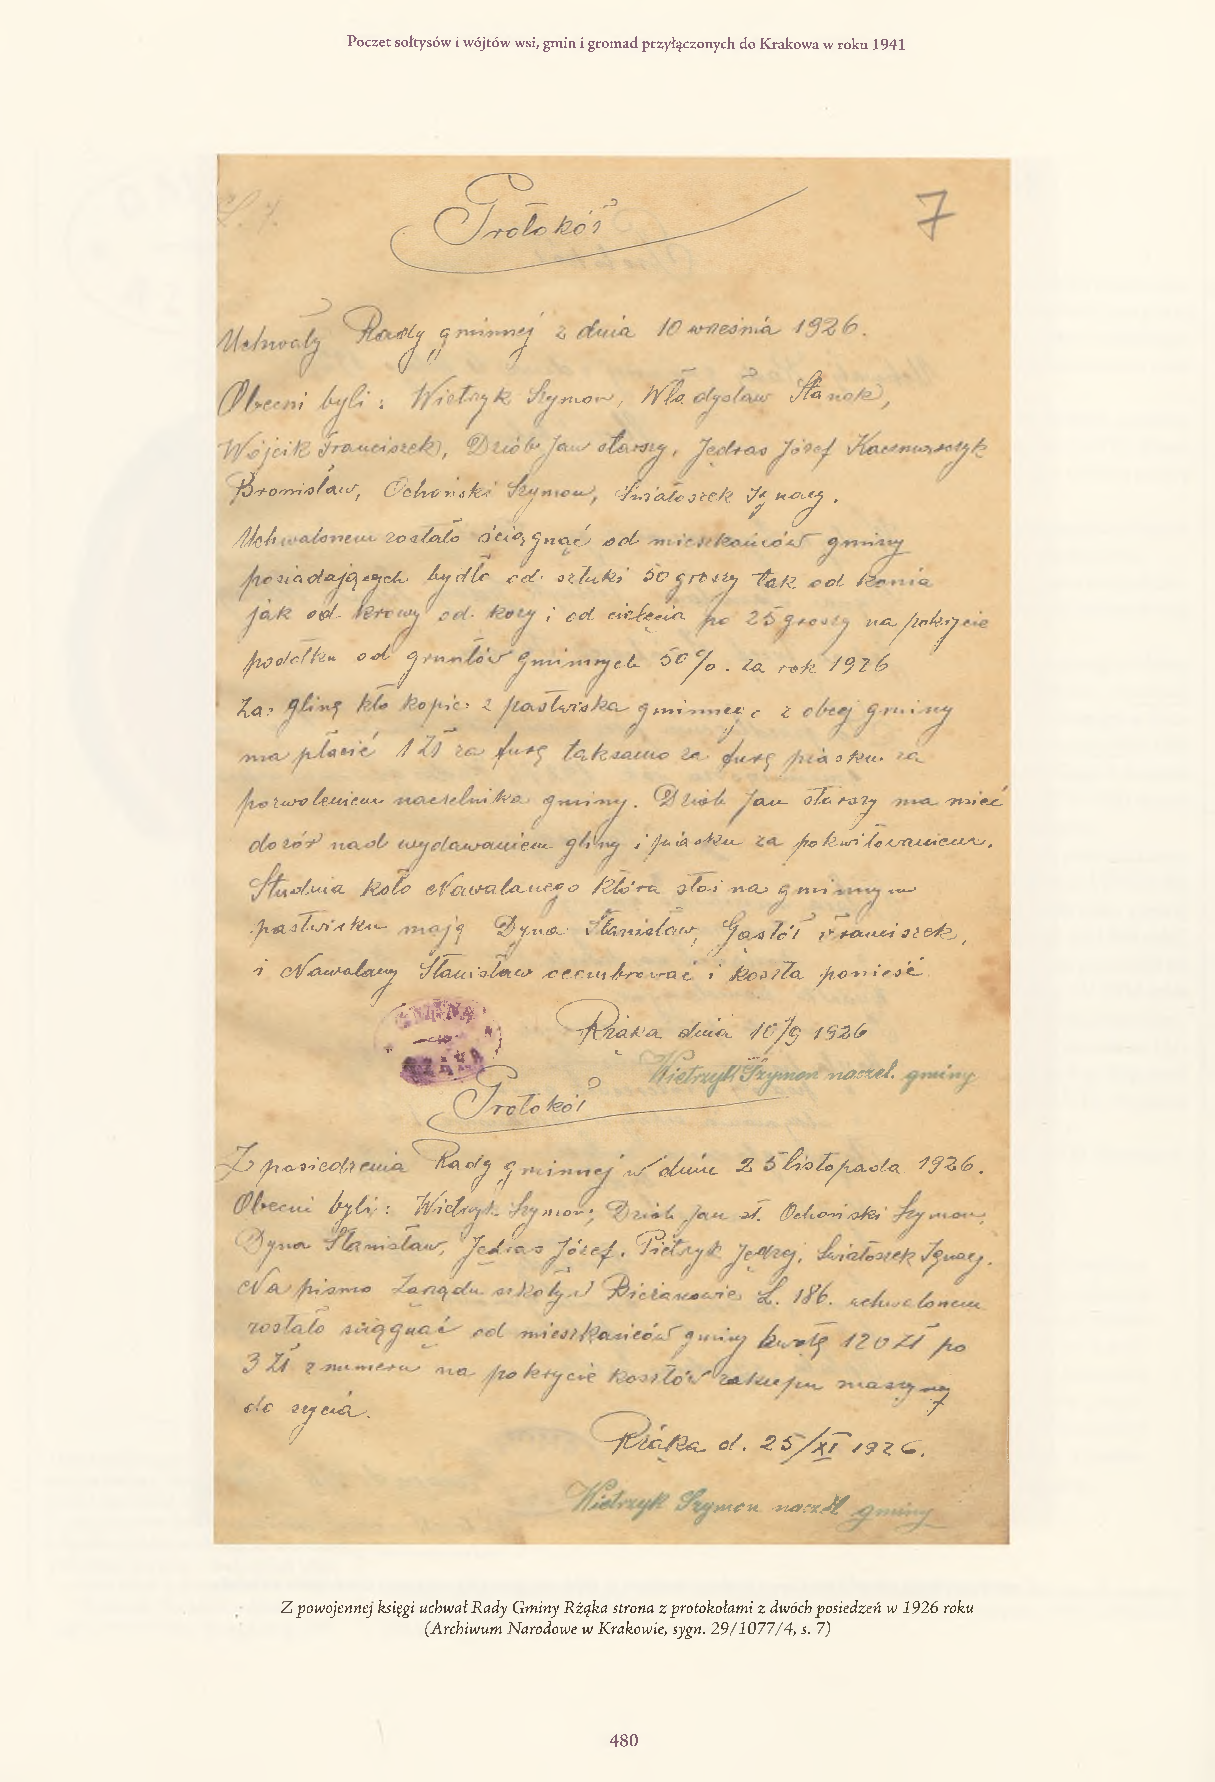 Poczet sołtysów i wójtów wsi, gmin i gromad przyłączonych do Krakowa w roku 1941
L. 7.
Protokół
7
Uchwały Rady gminnej z dnia 10 września 1926.
Obecni byli : Wietrzyk Szymon, Władysław Stanek,
Wójcik Franciszek, Dziób Jan starszy, Jędras Józef Kaczmarczyk
Bronisław, Ochoński Szymon, Światoszek Ignacy.
Uchwalonem zostało ściągnąć od mieszkańców gminy
posiadających bydło od sztuki 50 groszy tak od konia
jak od krowy od kozy i od cielęcia po 25 groszy na pokrycie
podatku od gruntów gminnych 50%. za rok 1926
Za glinę kto kopie z pastwiska gminnego z obcej gminy
ma płacić 1 Zł za furę taksamo za furę piasku za
pozwoleniem naczelnika gminy. Dziób Jan starszy ma mieć
dozór nad wydawaniem gliny i piasku za pokwitowaniem.
Studnia koło Nawalanego która stoi na gminnym
pastwisku mają Dyna Stanisław, Gąstół Franciszek,
i Nawalany Stanisław ocembrować i koszta ponieść
GMINA
RŻĄKA
Rżąka dnia 10/9 1926
Wietrzyk Szymon naczel. gminy
Protokół
Z posiedzenia Rady gminnej w dniu 25 listopada 1926.
Obecni byli : Wietrzyk Szymon, Dziób Jan st. Ochoński Szymon,
Dyna Stanisław, Jędras Józef, Pietrzyk Jędrzej, Światoszek Ignacy.
Na pismo Zarządu szkoły w Bieżanowie L. 186. uchwalonem
zostało ściągnąć od mieszkańców gminy kwotę 120 Zł po
3 Zł z numeru na pokrycie kosztów zakupu maszyny
do szycia.
Rżąka d. 25/XI 1926.
Wietrzyk Szymon naczel gminy
Z powojennej księgi uchwał Rady Gminy Rżąka strona z protokołami z dwóch posiedzeń w 1926 roku
(Archiwum Narodowe w Krakowie, sygn. 29/1077/4, s. 7)
480